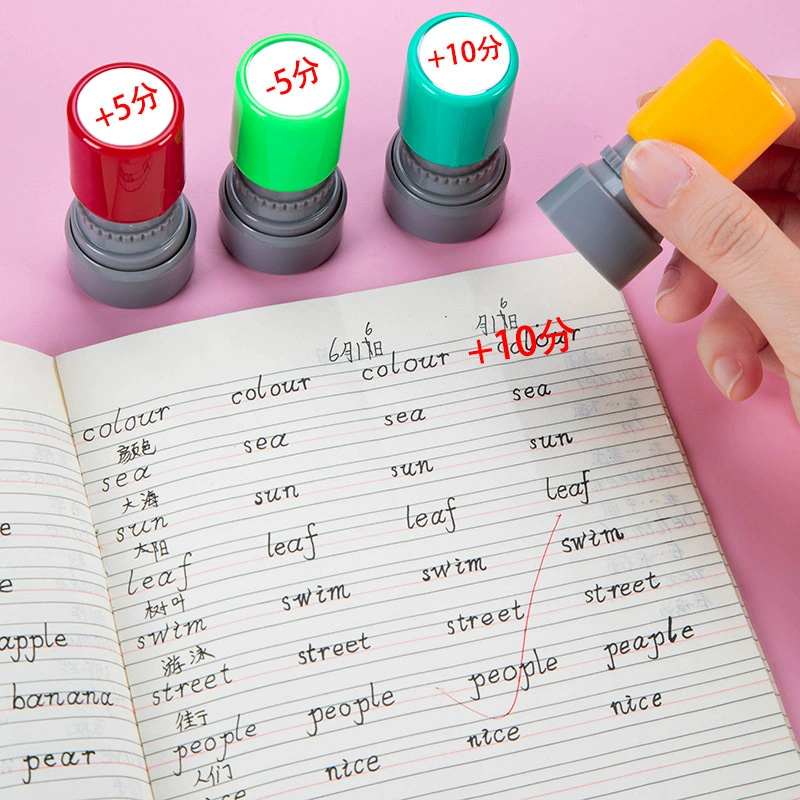 +5分
-5分
+10分
+10分
colour colour colour colour
颜色
sea sea sea sea
大海
sun sun sun sun
太阳
leaf leaf leaf leaf
树叶
swim swim swim swim
游泳
street street street street
people people people peaple
人们
nice nice nice
apple
banana
pear